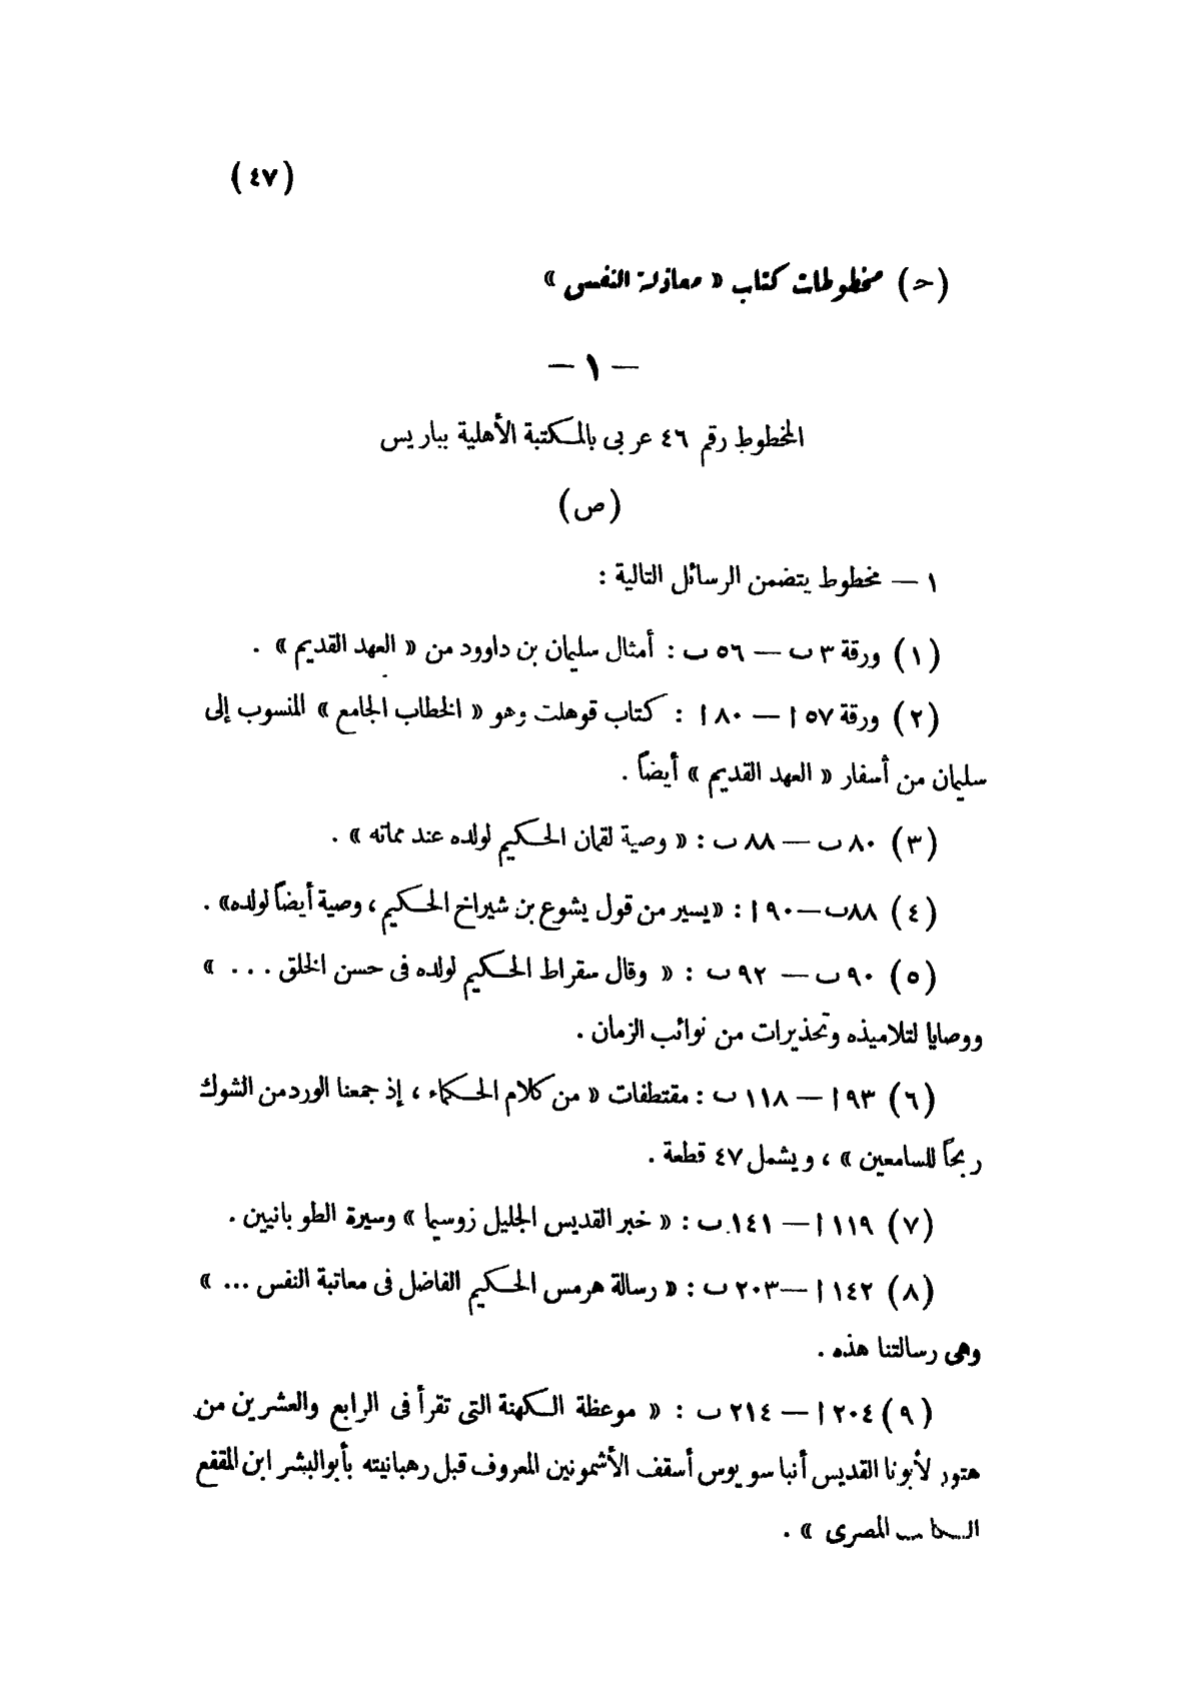 (٤٧)
(ح) مخطوطات كتاب « معاذلة النفس »
— ١ —
المخطوط رقم ٤٦ عربى بالمكتبة الأهلية بباريس
(ص)
١ — مخطوط يتضمن الرسائل التالية :
(١) ورقة ٣ ب — ٥٦ ب : أمثال سليمان بن داوود من « العهد القديم » .
(٢) ورقة ٥٧ ا — ٨٠ ا : كتاب قوهلت وهو « الخطاب الجامع » المنسوب إلى
سليمان من أسفار « العهد القديم » أيضاً .
(٣) ٨٠ ب — ٨٨ ب : « وصية لقمان الحكيم لولده عند مماته » .
(٤) ٨٨ب — ٩٠ ا : «يسير من قول يشوع بن شيراخ الحكيم ، وصية أيضاً لولده» .
(٥) ٩٠ ب — ٩٢ ب : « وقال سقراط الحكيم لولده فى حسن الخلق . . . »
ووصايا لتلاميذه وتحذيرات من نوائب الزمان .
(٦) ٩٣ ا — ١١٨ ب : مقتطفات « من كلام الحكماء ، إذ جمعنا الورد من الشوك
ربحاً للسامعين » ، ويشمل ٤٧ قطعة .
(٧) ١١٩ ا — ١٤١ ب : « خبر القديس الجليل زوسيما » وسيرة الطوبانيين .
(٨) ١٤٢ ا — ٢٠٣ ب : « رسالة هرمس الحكيم الفاضل فى معاتبة النفس ... »
وهى رسالتنا هذه .
(٩) ٢٠٤ ا — ٢١٤ ب : « موعظة الكهنة التى تقرأ فى الرابع والعشرين من
هتور لأبونا القديس أنبا سويوس أسقف الأشمونين المعروف قبل رهبانيته بأبو البشر ابن المقفع
المصرى » .